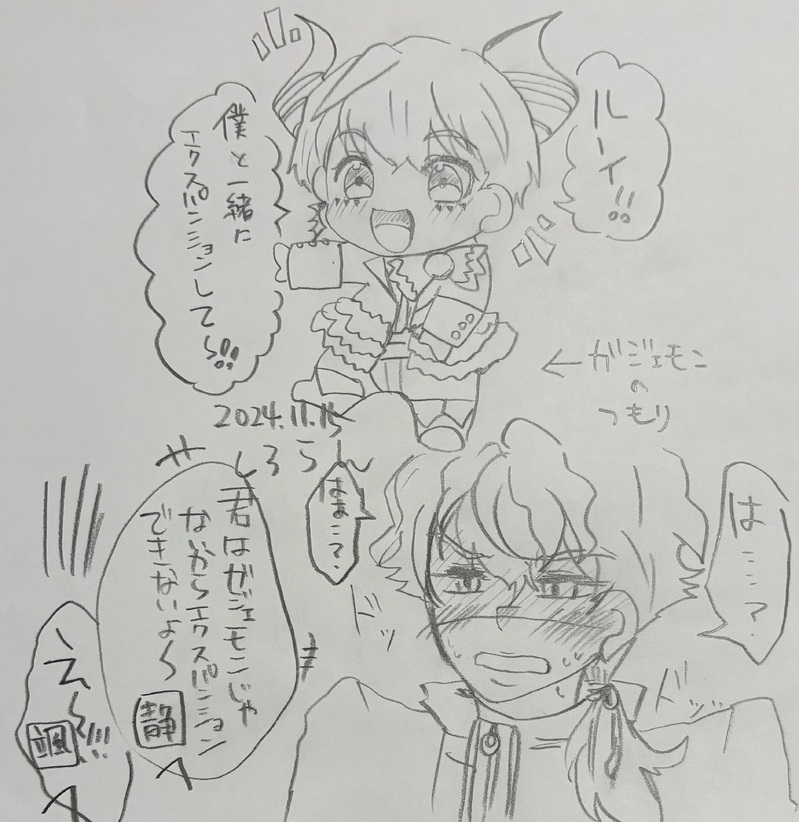 ルーイ!!
僕と一緒に
エクスパンションして〜!!
←ガジェモン
の
つもり
2024.11.15
しろらん
は……?
はぁ?
ドッ
ドッ
君はガジェモンじゃ
ないからエクスパンション
できないよ〜
静
え〜!!!
颯